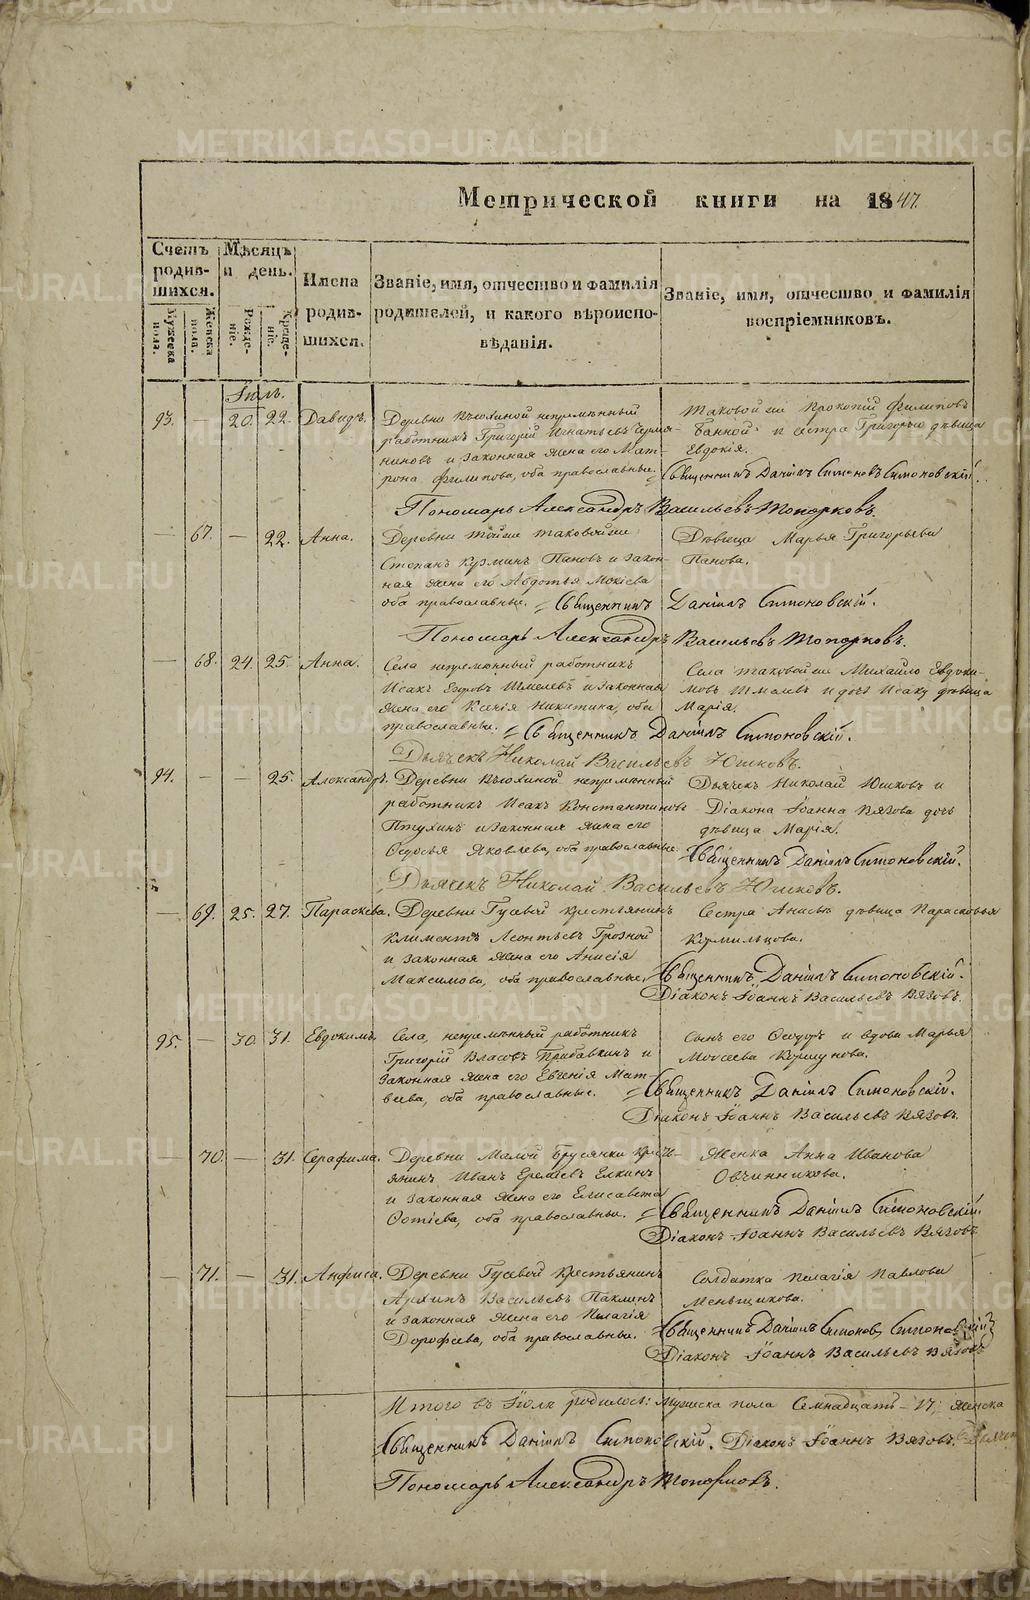 Метрической книги на 1847.
Счетъ родив-шихся.
Мѣсяцъ и день.
Имена родив-шихся.
Званіе, имя, отчество и фамилія родителей, и какого вѣроиспо-вѣданія.
Званіе, имя, отчество и фамилія воспріемниковъ.
Мужеска пола.
Женска пола.
Рожде-ніе.
Креще-ніе.
Іюль.
93. — 20. 22. Давидъ.
Деревни непремѣнный
работникъ Григорій Игнатьевъ
ниновъ и законная жена его Мат-
рона Филипова, оба православные.
Таковой же Прокопій Филиповъ
и сестра Григорья дѣвица
Евдокія.
Священникъ Даніилъ Симоновъ Симоновскій.
Пономарь Александръ Васильевъ Топорковъ.
— 67. — 22. Анна.
Деревни тойже таковойже
Степанъ Кузминъ Пановъ и закон-
ная жена его Авдотья Мокіева
оба православные.
Дѣвица Марья Григорьева
Панова.
Священникъ Даніилъ Симоновскій.
Пономарь Александръ Васильевъ Топорковъ.
— 68. 24. 25. Анна.
Села непремѣнный работникъ
Исакъ Шмелевъ и законная
жена его Ксенія Никитина, оба
православные.
Села таковойже Михайло Евдоки-
мовъ Шмелевъ и дочь Исаку дѣвица
Марія.
Священникъ Даніилъ Симоновскій.
Дьячекъ Николай Васильевъ Юшковъ.
94. — — 25. Александръ.
Деревни непремѣнный
работникъ Исакъ Константиновъ
Птухинъ и законная жена его
Яковлева, оба православные.
Дьячекъ Николай Юшковъ и
Діакона Іоанна Вязова дочь
дѣвица Марія.
Священникъ Даніилъ Симоновскій.
Дьячекъ Николай Васильевъ Юшковъ.
— 69. 25. 27. Параскева.
Деревни Гусевой крестьянинъ
Климентъ Леонтьевъ Грозной
и законная жена его Анисія
Максимова, оба православные.
Сестра Анисьи дѣвица Парасковья
Кормильцова.
Священникъ Даніилъ Симоновскій.
Діаконъ Іоаннъ Васильевъ Вязовъ.
95. — 30. 31. Евдокимъ.
Села, непремѣнный работникъ
Григорій Власовъ Прибавкинъ и
законная жена его Евгенія Мат-
вѣева, оба православные.
Сынъ его Ѳеодоръ и вдова Марья
Моисеева Коршунова.
Священникъ Даніилъ Симоновскій.
Діаконъ Іоаннъ Васильевъ Вязовъ.
— 70. — 31. Серафима.
Деревни Малой Брусянки крестья-
янинъ Иванъ Еремѣевъ Елкинъ
и законная жена его Елисавета
Фотіева, оба православные.
Женка Анна Иванова
Овчинникова.
Священникъ Даніилъ Симоновскій.
Діаконъ Іоаннъ Васильевъ Вязовъ.
— 71. — 31. Анфиса.
Деревни Гусевой крестьянинъ
Архипъ Васильевъ Паклинъ
и законная жена его Пелагія
Дорофеева, оба православные.
Солдатка Пелагія Павлова
Меньщикова.
Священникъ Даніилъ Симоновъ Симоновскій
Діаконъ Іоаннъ Васильевъ Вязовъ
Итого въ Іюлѣ родилось: Мужеска пола Семнадцать — 17, женска
Священникъ Даніилъ Симоновскій. Діаконъ Іоаннъ Вязовъ. Дьячекъ
Пономарь Александръ Топорковъ.
METRIKI.GASO-URAL.RU